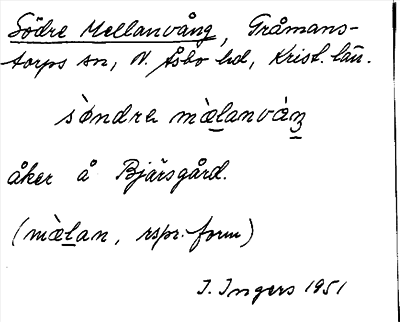 Södre Mellanvång, Gråmans-
torps sn, N. Åsbo hd, Krist. län.
sǿndrɐ mæ̀lanvàŋ
åker å Bjärsgård.
(mæ̀lan, rspr.-form)
I. Ingers 1951